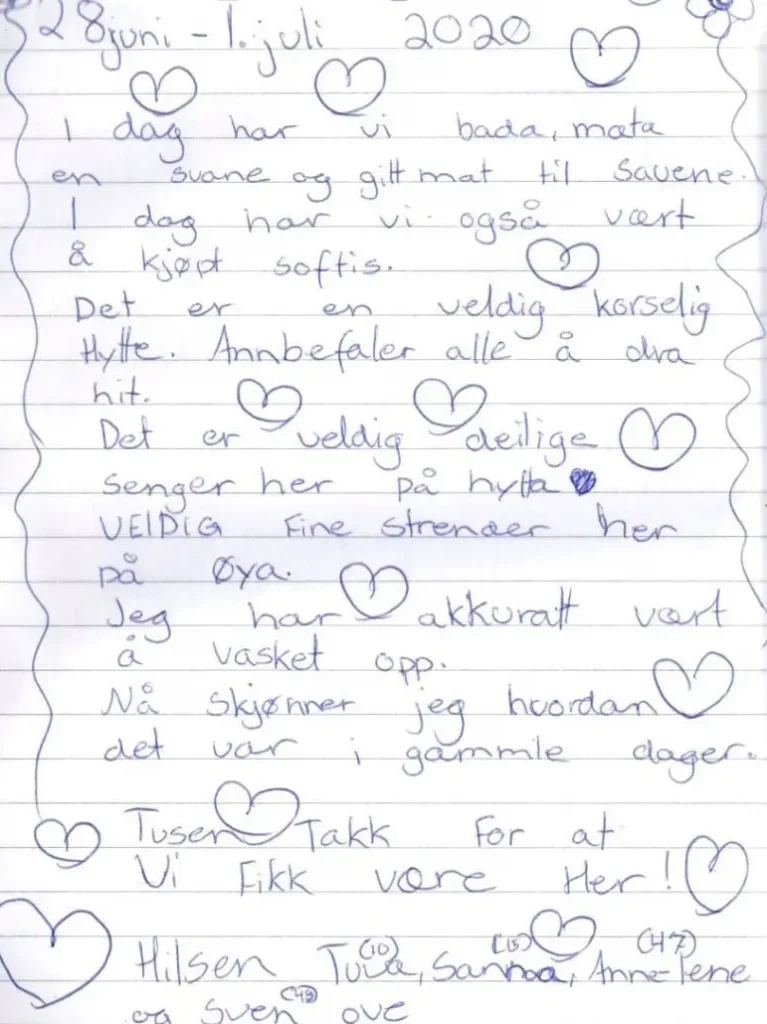 28juni - 1. juli 2020
I dag har vi bada, mata
en svane og gitt mat til Sauene.
I dag har vi også vært
å kjøpt softis.
Det er en veldig korselig
Hytte. Annbefaler alle å dra
hit.
Det er veldig deilige
senger her på hytta
VElDIG Fine strender her
på Øya.
Jeg har akkuratt vært
å vasket opp.
Nå skjønner jeg hvordan
det var i gammle dager.
Tusen Takk For at
Vi Fikk være Her!
(10) (15) (47)
Hilsen Tuva, Sannoa, Anne-Lene
og Sven (49) ove